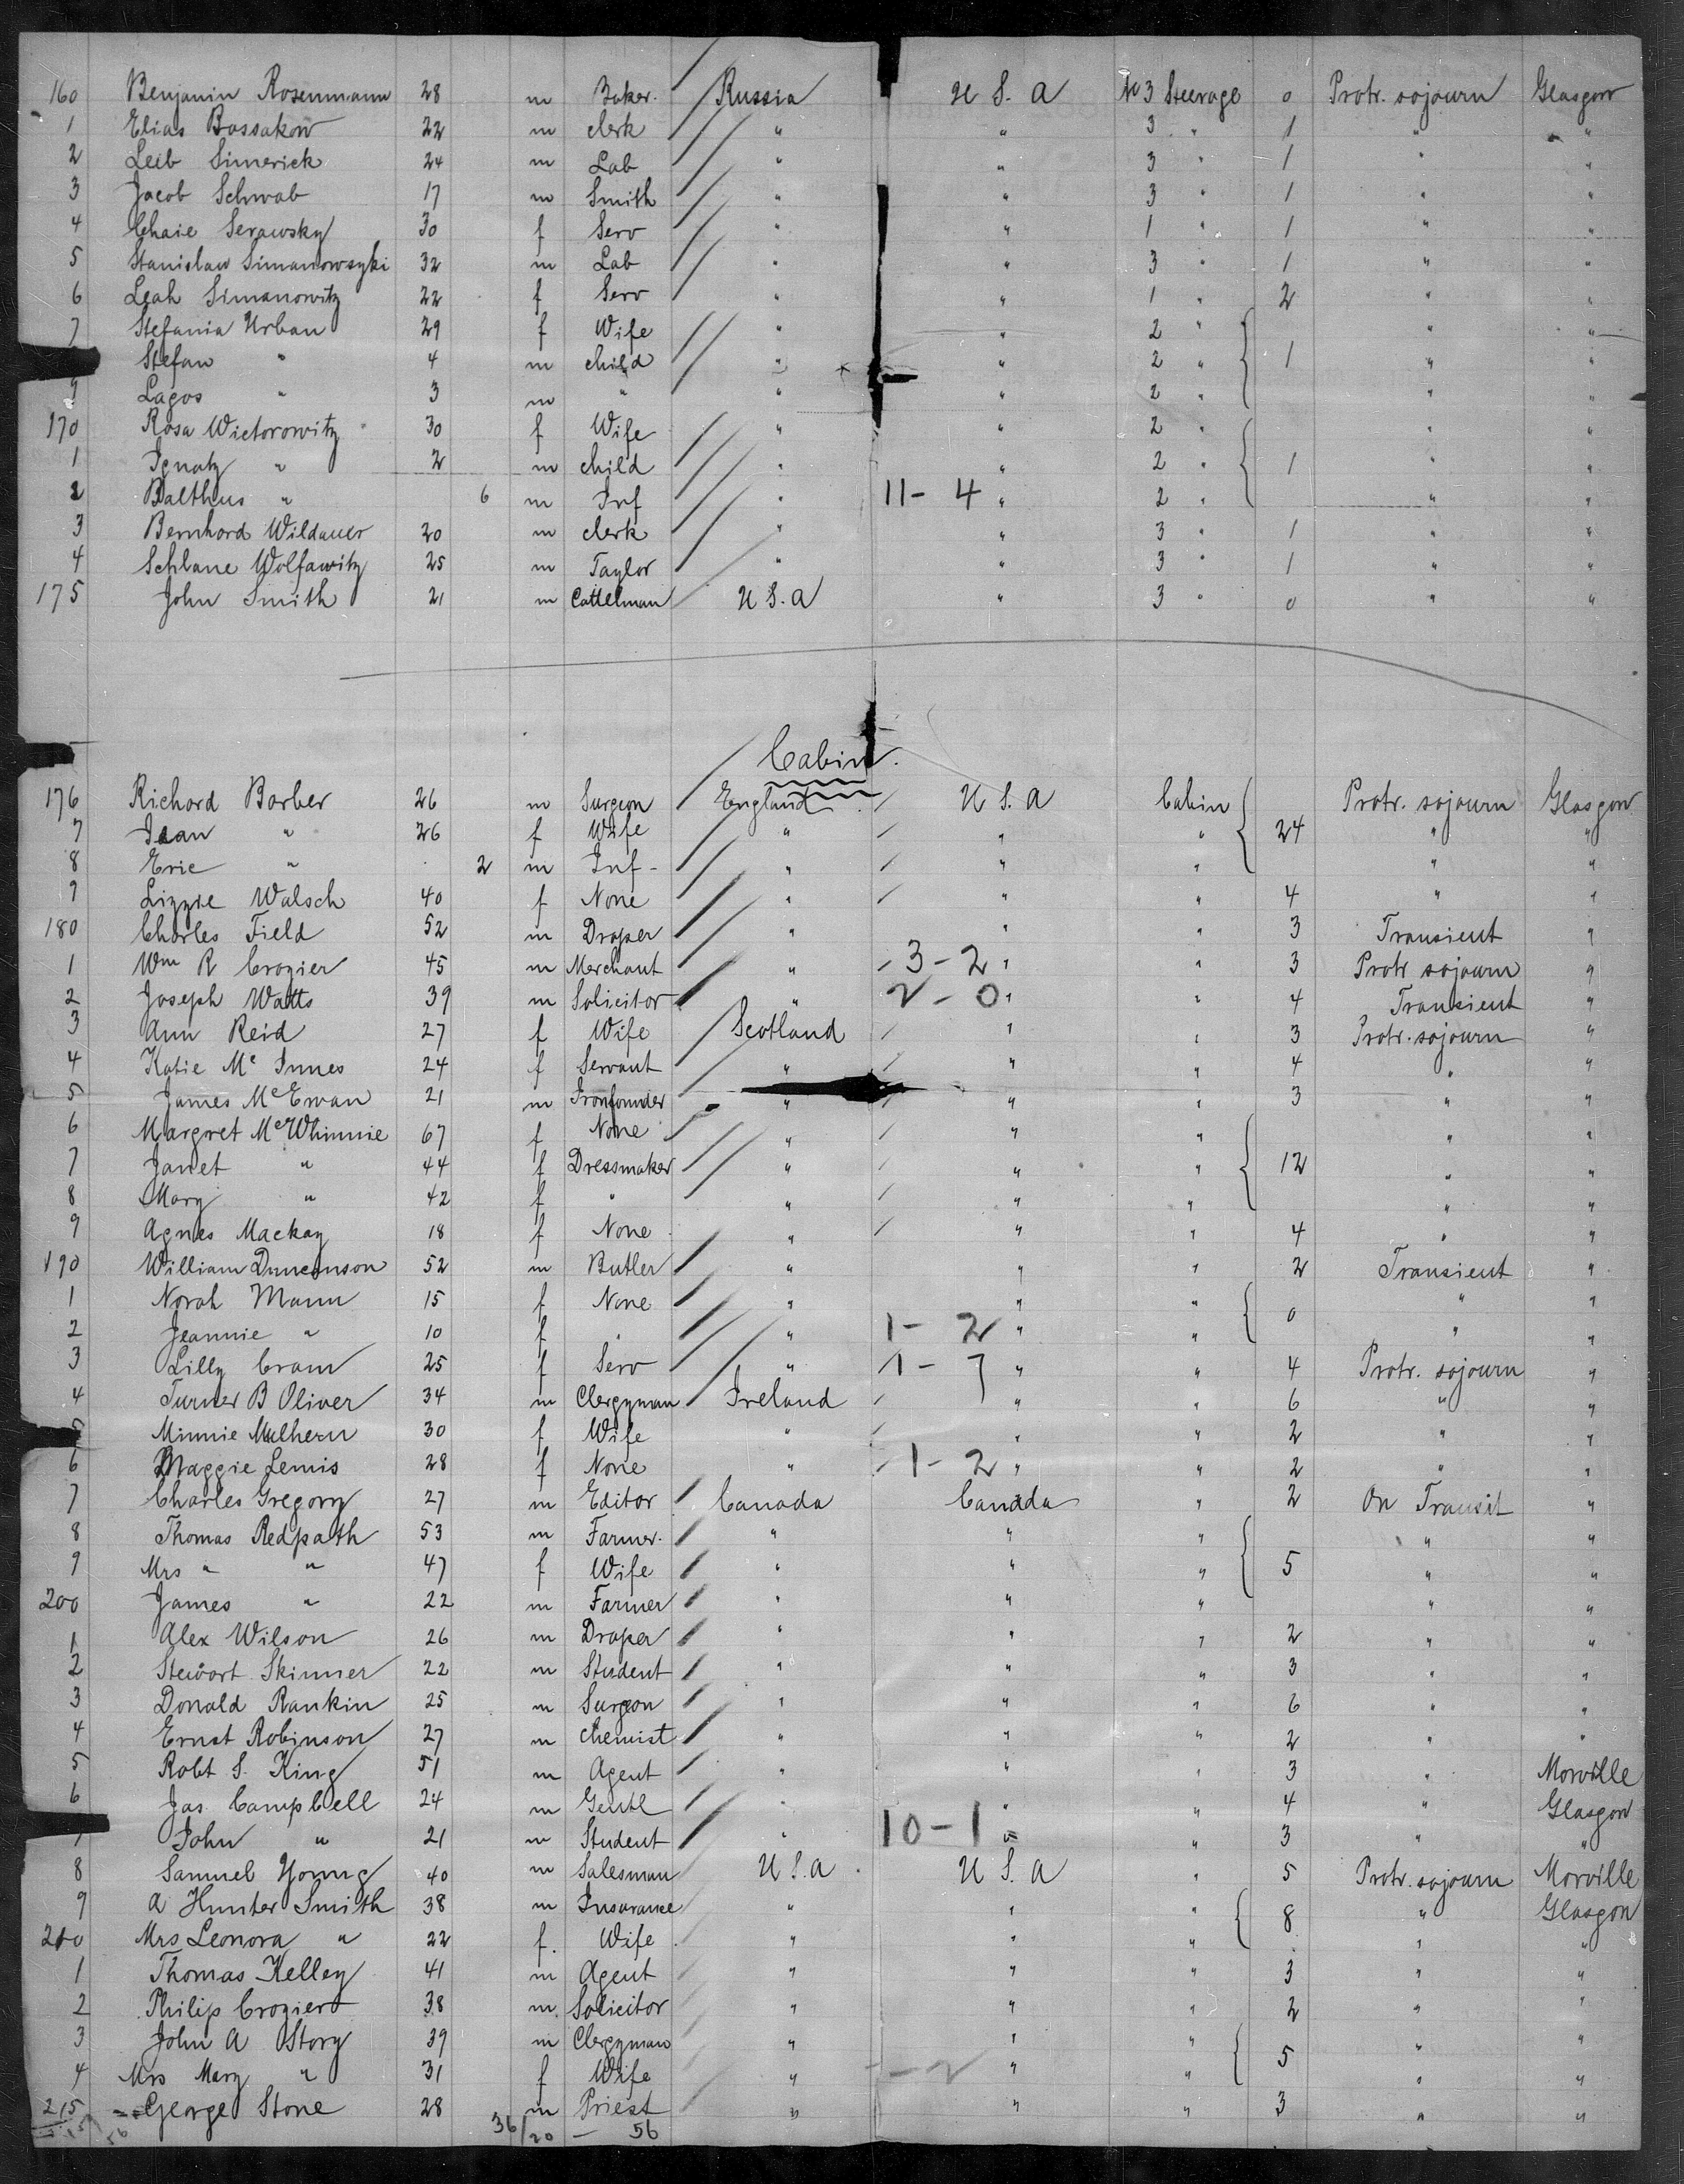 160 Benjamin Rosenmann 28 m Baker Russia U S. A No 3 Steerage 0 Protr. sojourn Glasgow
1 Elias Bassakow 22 m clerk " " 3 " 1 " "
2 Leib Simerick 24 m Lab " " 3 " 1 " "
3 Jacob Schwab 17 m Smith " " 3 " 1 " "
4 Chaie Serawsky 30 f Serv " " 1 " 1 " "
5 Stanislaw Simanowsyki 32 m Lab " " 3 " 1 " "
6 Leah Simanowitz 22 f Serv " " 1 " 2 " "
7 Stefania Urban 29 f Wife " " 2 " " "
Stefan " 4 m child " " 2 " 1 " "
9 Lagos " 3 m " " " 2 " " "
170 Rosa Wictorowitz 30 f Wife " " 2 " " "
1 Ignatz " 2 m child " " 2 " 1 " "
2 Balthus " 6 m Inf " 11-4 " 2 " " "
3 Bernhard Wildauer 20 m clerk " " 3 " 1 " "
4 Schlane Wolfawitz 25 m Taylor " " 3 " 1 " "
175 John Smith 21 m Cattelman U S. A " 3 " 0 " "
Cabin.
176 Richard Barber 26 m Surgeon England U S. A Cabin Protr. sojourn Glasgow
7 Jean " 26 f Wife " " " 24 " "
8 Eric " 2 m Inf - " " " " "
9 Lizzie Walsch 40 f None " " " 4 " "
180 Charles Field 52 m Draper " " " 3 Transient "
1 Wm R Crozier 45 m Merchant " 3-2 " " 3 Protr sojourn "
2 Joseph Watts 39 m Solicitor " 2-0 " " 4 Transient "
3 Ann Reid 27 f Wife Scotland " " 3 Protr. sojourn "
4 Katie Mc Innes 24 f Servant " " " 4 " "
5 James McEwan 21 m Ironfounder " " " 3 " "
6 Margret McWhinnie 67 f None " " " " "
7 Janet " 44 f Dressmaker " " " 12 " "
8 Mary " 42 f " " " " " "
9 Agnes Mackay 18 f None " " " 4 " "
190 William Duncanson 52 m Butler " " " 2 Transient "
1 Norah Mann 15 f None " " " 0 " "
2 Jeannie " 10 f " " 1-2 " " " "
3 Lilly Cram 25 f Serv " 1-7 " " 4 Protr. sojourn "
4 Turner B Oliver 34 m Clergyman Ireland " " 6 " "
5 Minnie Mulhern 30 f Wife " " " 2 " "
6 Maggie Lemis 28 f None " 1-2 " " 2 " "
7 Charles Gregory 27 m Editor Canada Canada " 2 On Transit "
8 Thomas Redpath 53 m Farmer " " " " "
9 Mrs " " 47 f Wife " " " 5 " "
200 James " 22 m Farmer " " " " "
1 Alex Wilson 26 m Draper " " " 2 " "
2 Stewart Skinner 22 m Student " " " 3 " "
3 Donald Rankin 25 m Surgeon " " " 6 " "
4 Ernst Robinson 27 m chemist " " " 2 " "
5 Robt S. King 51 m Agent " " " 3 " Morville
6 Jas Campbell 24 m Gentl " " " 4 " Glasgow
7 John " 21 m Student " 10-1 " " 3 " "
8 Samuel Young 40 m Salesman U S. A U S. A " 5 Protr. sojourn Morville
9 A Hunter Smith 38 m Insurance " " " 8 " Glasgow
210 Mrs Leonora " 22 f. Wife " " " " "
1 Thomas Kelley 41 m Agent " " " 3 " "
2 Philip Crozier 38 m Solicitor " " " 2 " "
3 John A Story 39 m Clergyman " " " 5 " "
4 Mrs Mary " 31 f Wife " -2 " " " "
215 George Stone 28 m Priest " " " 3 " "
36/20 - 56